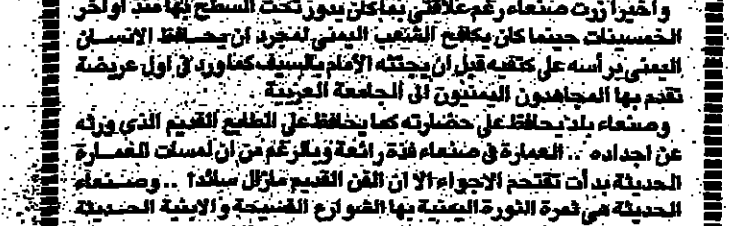 وأخيرا زرت صنعاء رغم علاقتي بما كان يدور تحت السطح بها منذ أواخر
الخمسينات حينما كان يكافح الشعب اليمني لمجرد ان يحافظ الانسان
اليمني برأسه على كتفيه قبل ان يجتثه الأمام بالسيف كما ورد في اول عريضة
تقدم بها المجاهدون اليمنيون الى الجامعة العربية .
وصنعاء بلد يحافظ على حضارته كما يحافظ على الطابع القديم الذي ورثه
عن اجداده .. العمارة في صنعاء فذة رائعة وبالرغم من ان لمسات للعمارة
الحديثة بدأت تقتحم الاجواء الا ان الفن القديم مازال سائدا .. وصنعاء
الحديثة هي ثمرة الثورة اليمنية بها الشوارع الفسيحة والابنية الحديثة